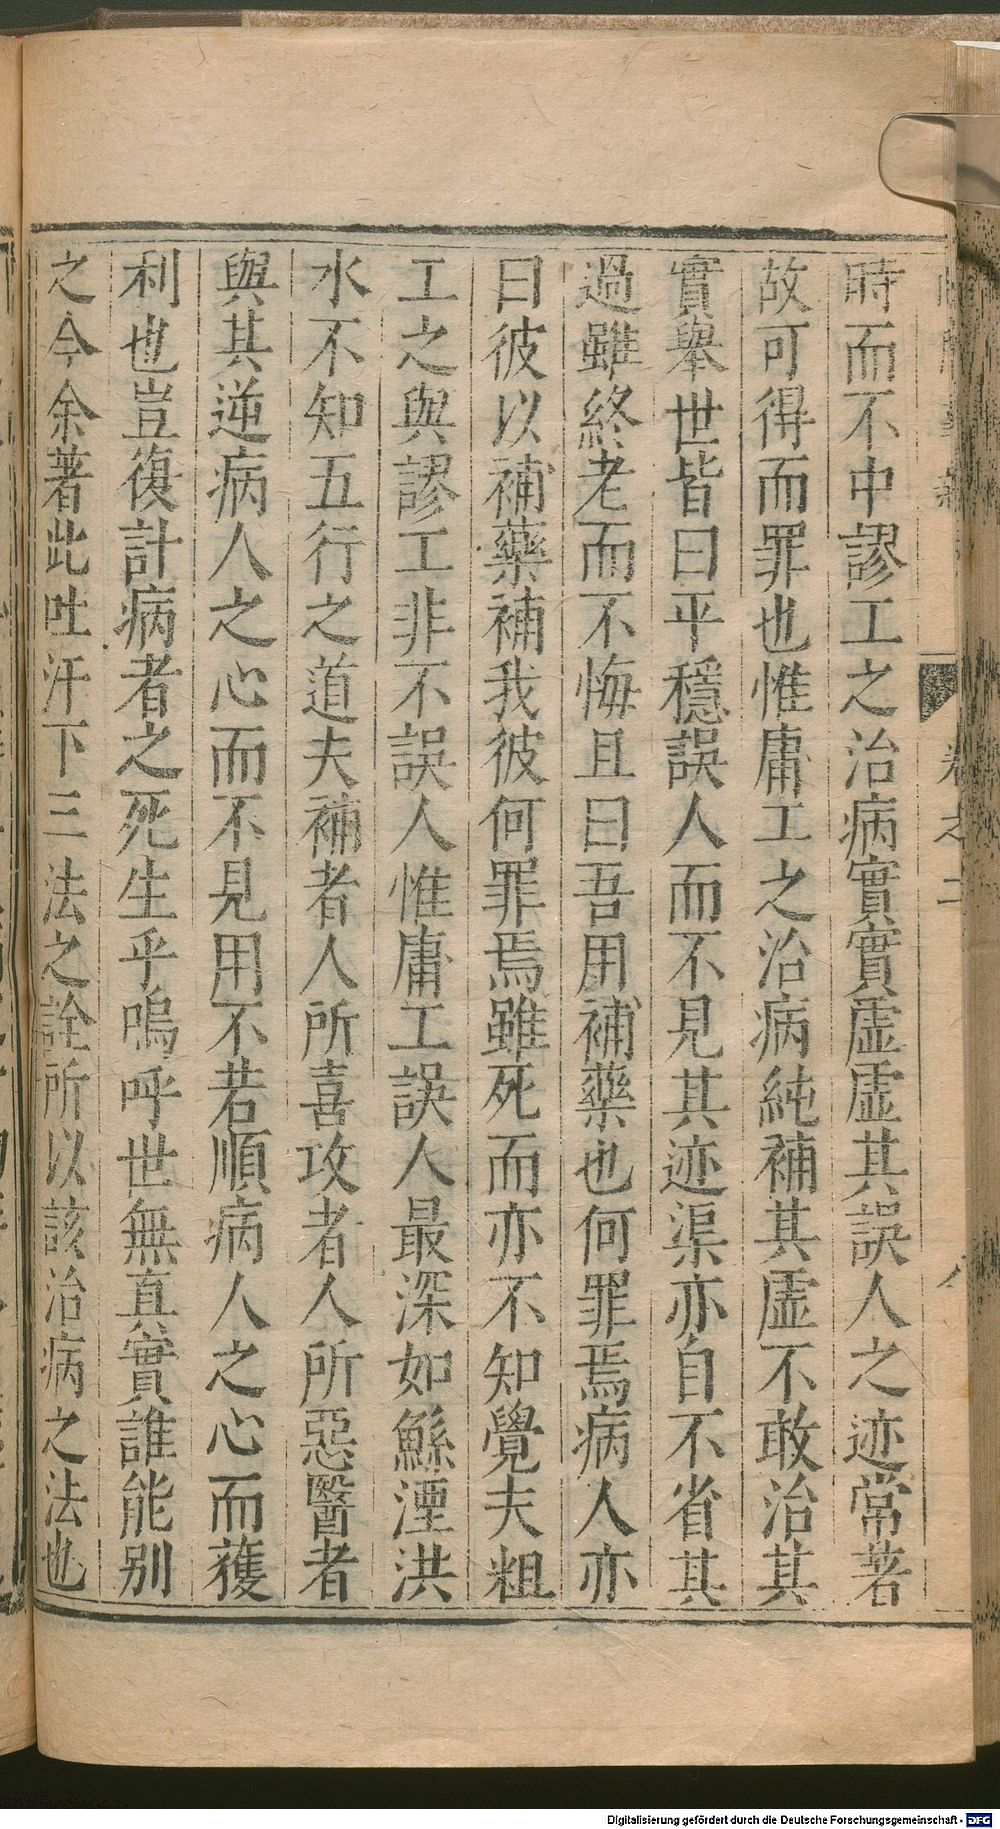 時而不中謬工之治病實實虛虛其誤人之迹常著
故可得而罪也惟庸工之治病純補其虛不敢治其
實舉世皆曰平穩誤人而不見其迹渠亦自不省其
過雖終老而不悔且曰吾用補藥也何罪焉病人亦
曰彼以補藥補我彼何罪焉雖死而亦不知覺夫粗
工之與謬工非不誤人惟庸工誤人最深如鯀湮洪
水不知五行之道夫補者人所喜攻者人所惡醫者
與其逆病人之心而不見用不若順病人之心而獲
利也豈復計病者之死生乎嗚呼世無真實誰能別
之今余著此吐汗下三法之詮所以該治病之法也
卷之二
八
Digitalisierung gefördert durch die Deutsche Forschungsgemeinschaft - DFG